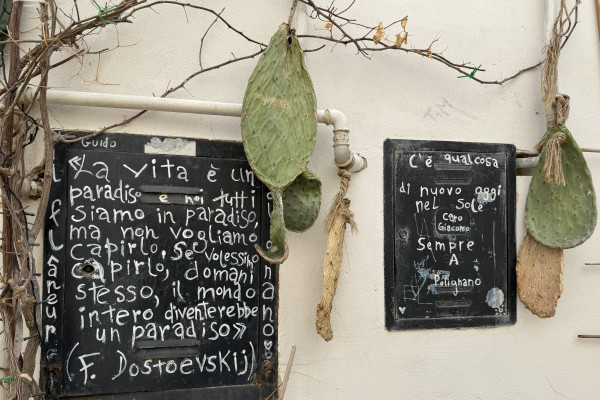 Guido
flaneur
"La vita è un
paradiso e noi tutti
siamo in paradiso,
ma non vogliamo
capirlo. Se volessimo
capirlo, domani
stesso, il mondo
intero diventerebbe
un paradiso»
(F. Dostoevskij)
C'è qualcosa
di nuovo oggi
nel sole
Caro
Giacomo
Sempre
A
Polignano